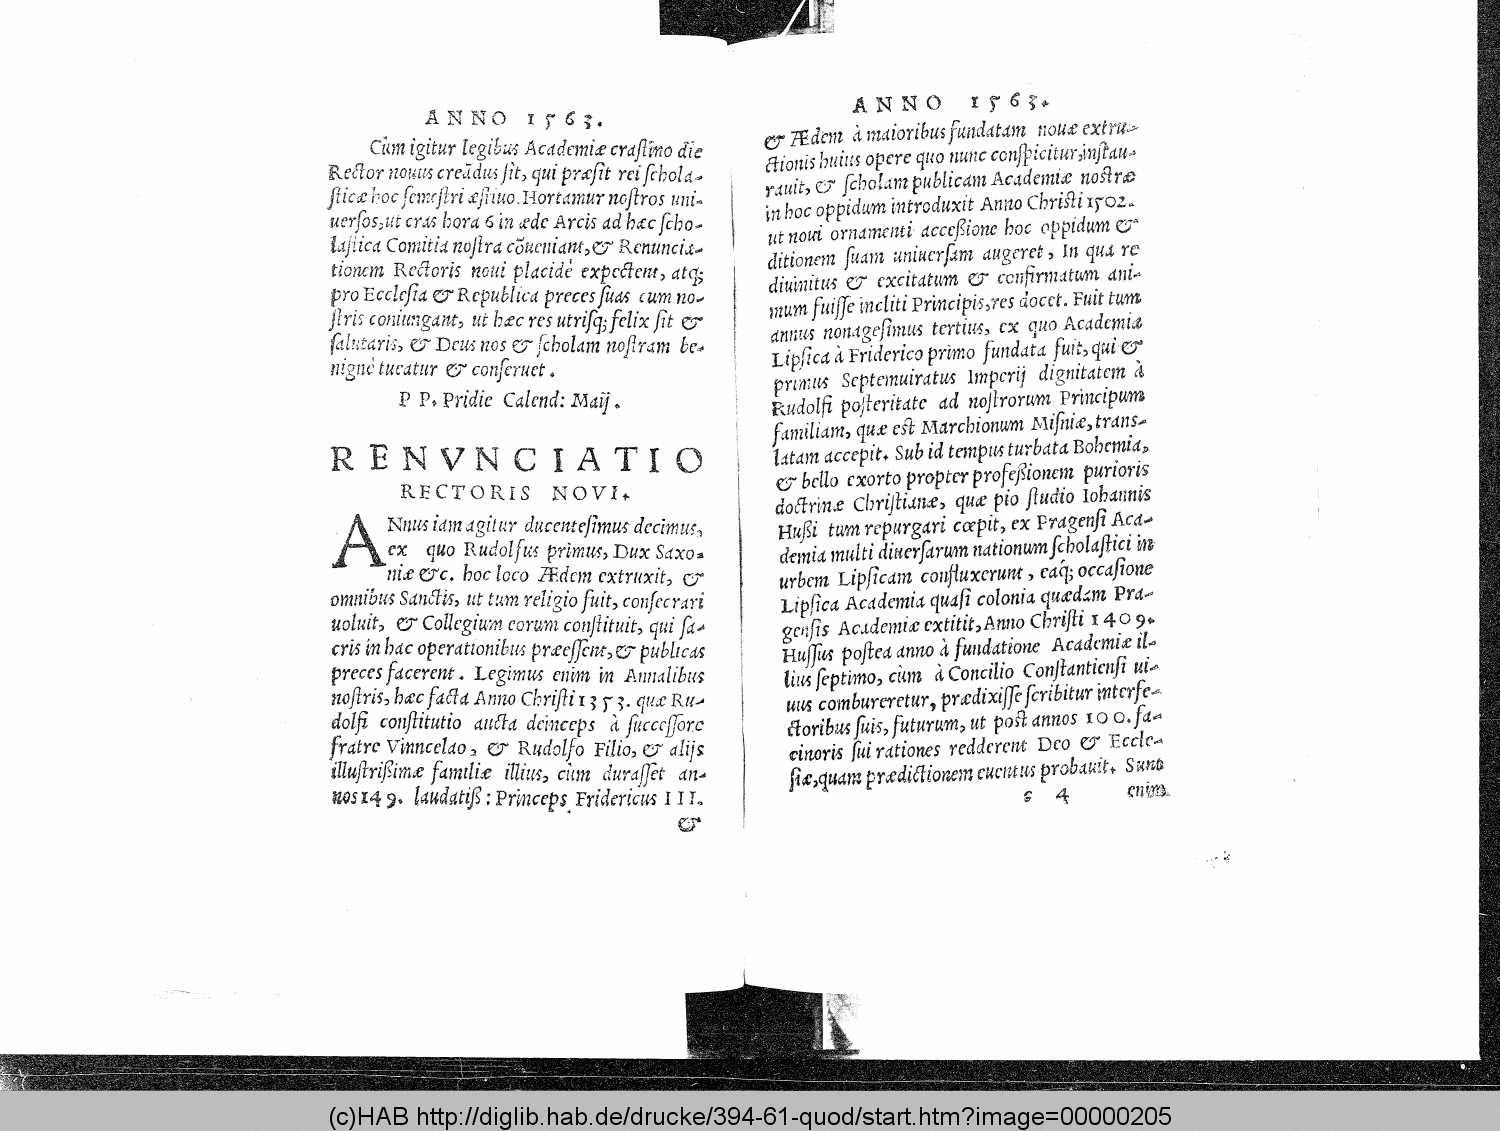 ANNO 1563.
Cùm igitur legibus Academiæ craſtino die
Rector nouus creādus ſit, qui præſit rei ſchola-
ſticæ hoc ſemeſtri æſtiuo. Hortamur noſtros uni-
uerſos, ut cras hora 6 in æde Arcis ad hæc ſcho-
laſtica Comitia noſtra cōueniant, & Renuncia-
tionem Rectoris noui placidè expectent, atq;
pro Ecclesia & Republica preces ſuas cum no-
ſtris coniungant, ut hæc res utriſq; felix ſit &
ſalutaris, & Deus nos & ſcholam noſtram be-
nignè tueatur & conſeruet.
P P. Pridie Calend: Maij.
RENVNCIATIO
RECTORIS NOVI.
ANnus iam agitur ducentesimus decimus,
ex quo Rudolfus primus, Dux Saxo-
niæ &c. hoc loco Ædem extruxit, &
omnibus Sanctis, ut tum religio fuit, conſecrari
uoluit, & Collegium eorum conſtituit, qui ſa-
cris in hac operationibus præeſſent, & publicas
preces facerent. Legimus enim in Annalibus
noſtris, hæc facta Anno Chriſti 1353. quæ Ru-
dolfi conſtitutio aucta deinceps à ſucceſſore
fratre Vinncelao, & Rudolfo Filio, & alijs
illuſtrißimæ familiæ illius, cùm duraſſet an-
nos 149. laudatiß: Princeps Fridericus III.
&
ANNO 1563.
& Ædem à maioribus fundatam nouæ extru-
ctionis huius opere quo nunc conſpicitur, inſtau-
rauit, & ſcholam publicam Academiæ noſtræ
in hoc oppidum introduxit Anno Chriſti 1502.
ut noui ornamenti acceßione hoc oppidum &
ditionem ſuam uniuerſam augeret, In qua re
diuinitus & excitatum & confirmatum ani-
mum fuiſſe incliti Principis, res docet. Fuit tum
annus nonageſimus tertius, ex quo Academia
Lipſica à Friderico primo fundata fuit, qui &
primus Septemuiratus Imperij dignitatem à
Rudolfi poſteritate ad noſtrorum Principum
familiam, quæ eſt Marchionum Miſniæ, trans-
latam accepit. Sub id tempus turbata Bohemia,
& bello exorto propter profeßionem purioris
doctrinæ Chriſtianæ, quæ pio ſtudio Iohannis
Hußi tum repurgari cœpit, ex Pragenſi Aca-
demia multi diuerſarum nationum ſcholaſtici in
urbem Lipſicam confluxerunt, eaq́; occaſione
Lipſica Academia quaſi colonia quædam Pra-
genſis Academiæ extitit, Anno Chriſti 1409.
Huſſus poſtea anno à fundatione Academiæ il-
lius ſeptimo, cùm à Concilio Conſtantienſi ui-
uus combureretur, prædixiſſe ſcribitur interfe-
ctoribus ſuis, futurum, ut poſt annos 100. fa-
cinoris ſui rationes redderent Deo & Eccle-
ſiæ, quam prædictionem euentus probauit. Sunt
c 4 enim
(c)HAB http://diglib.hab.de/drucke/394-61-quod/start.htm?image=00000205